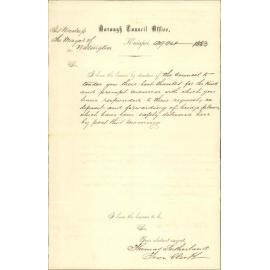 Borough Council Office,
Kaiapoi 29 Oct 1883
The Mayor of
Wellington
Sir
I have the honor by direction of the Council to
tender you their best thanks for the kind
and prompt manner with which you
have responded to their request, re
deposit and forwarding of bridge plans
which have been safely delivered here
by post this morning
I have the honor to be
Sir
Your obedient servant
Thomas Sutherland
Town Clerk